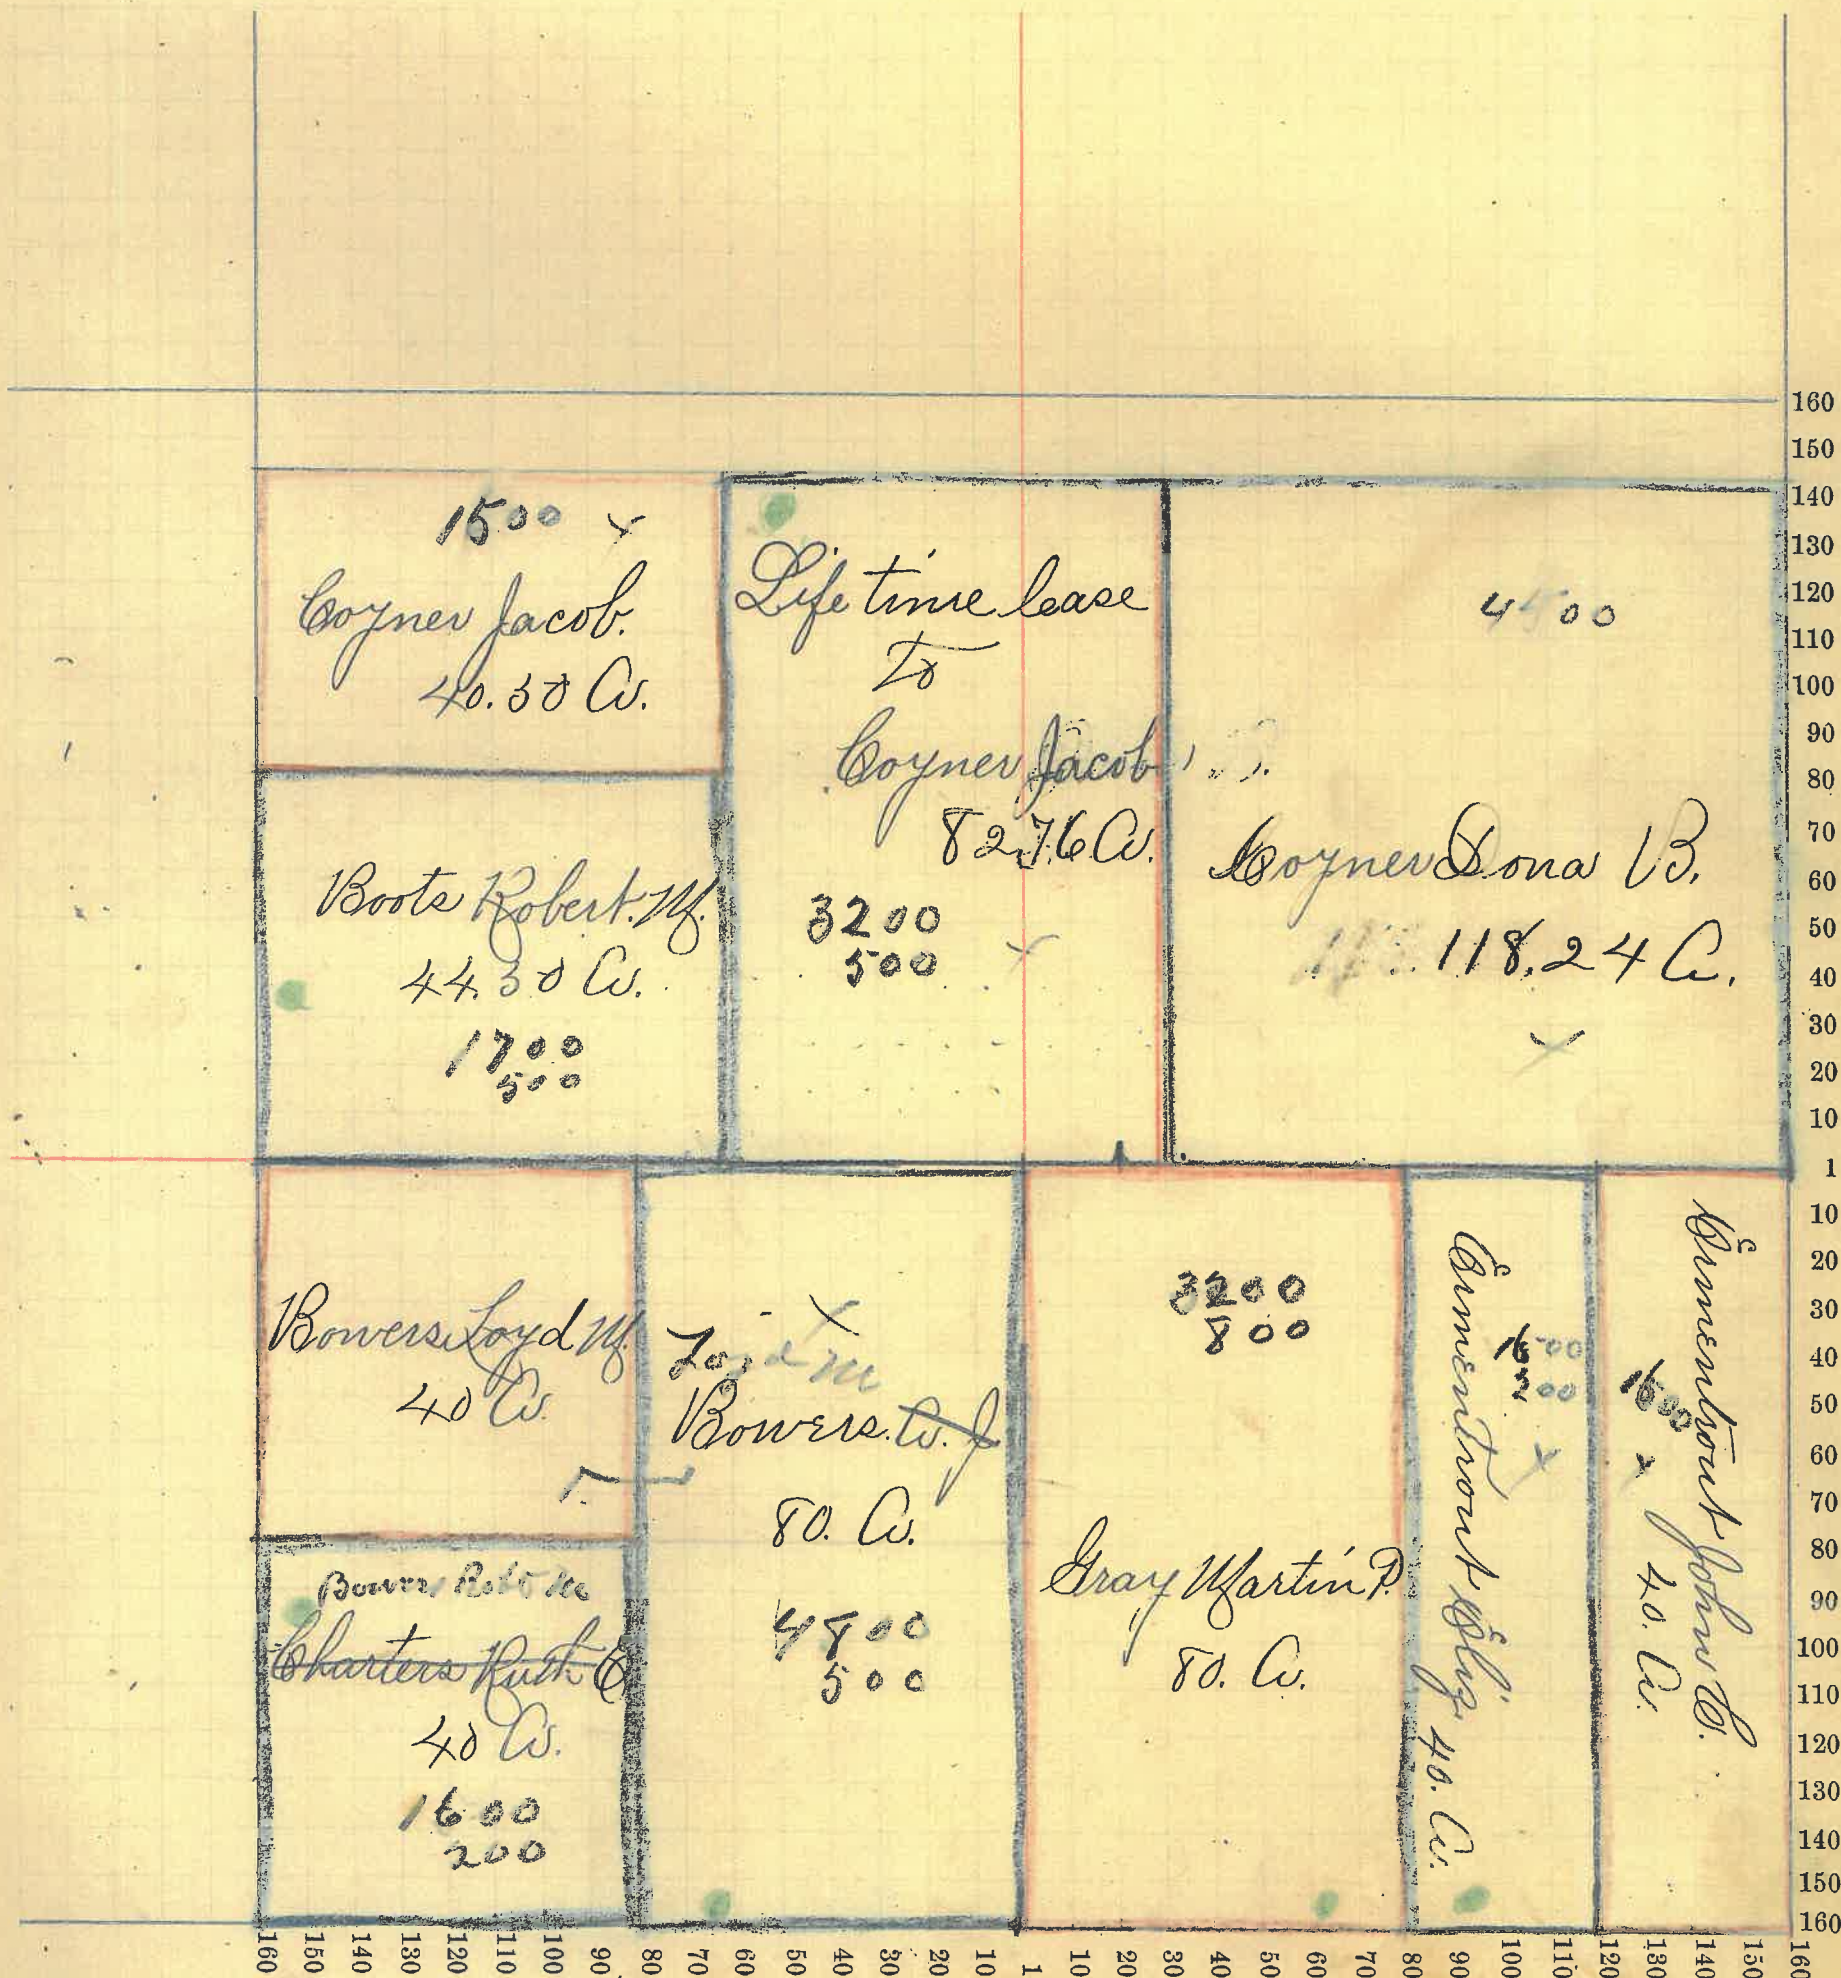 1500 x
Coyner Jacob.
40.30 A.
Life time lease
To
Coyner Jacob
82.76 A.
3200
500
x
4500
Coyner Dona B.
118.24 A.
x
Boots Robert. M.
44.30 A.
1700
500
Bowers Loyd M.
40 A.
x
Loyd M
Bowers. A. J
80. A.
4800
500
Bowers Robt M
Charters Ruth E
40 A.
1600
200
3200
800
Gray Martin P.
80. A.
Ermentrout Eliz. 40. A.
1600
200
x
Ermentrout John W.
40. A.
1600
x
160
150
140
130
120
110
100
90
80
70
60
50
40
30
20
10
1
10
20
30
40
50
60
70
80
90
100
110
120
130
140
150
160
160 150 140 130 120 110 100 90 80 70 60 50 40 30 20 10 1 10 20 30 40 50 60 70 80 90 100 110 120 130 140 150 160